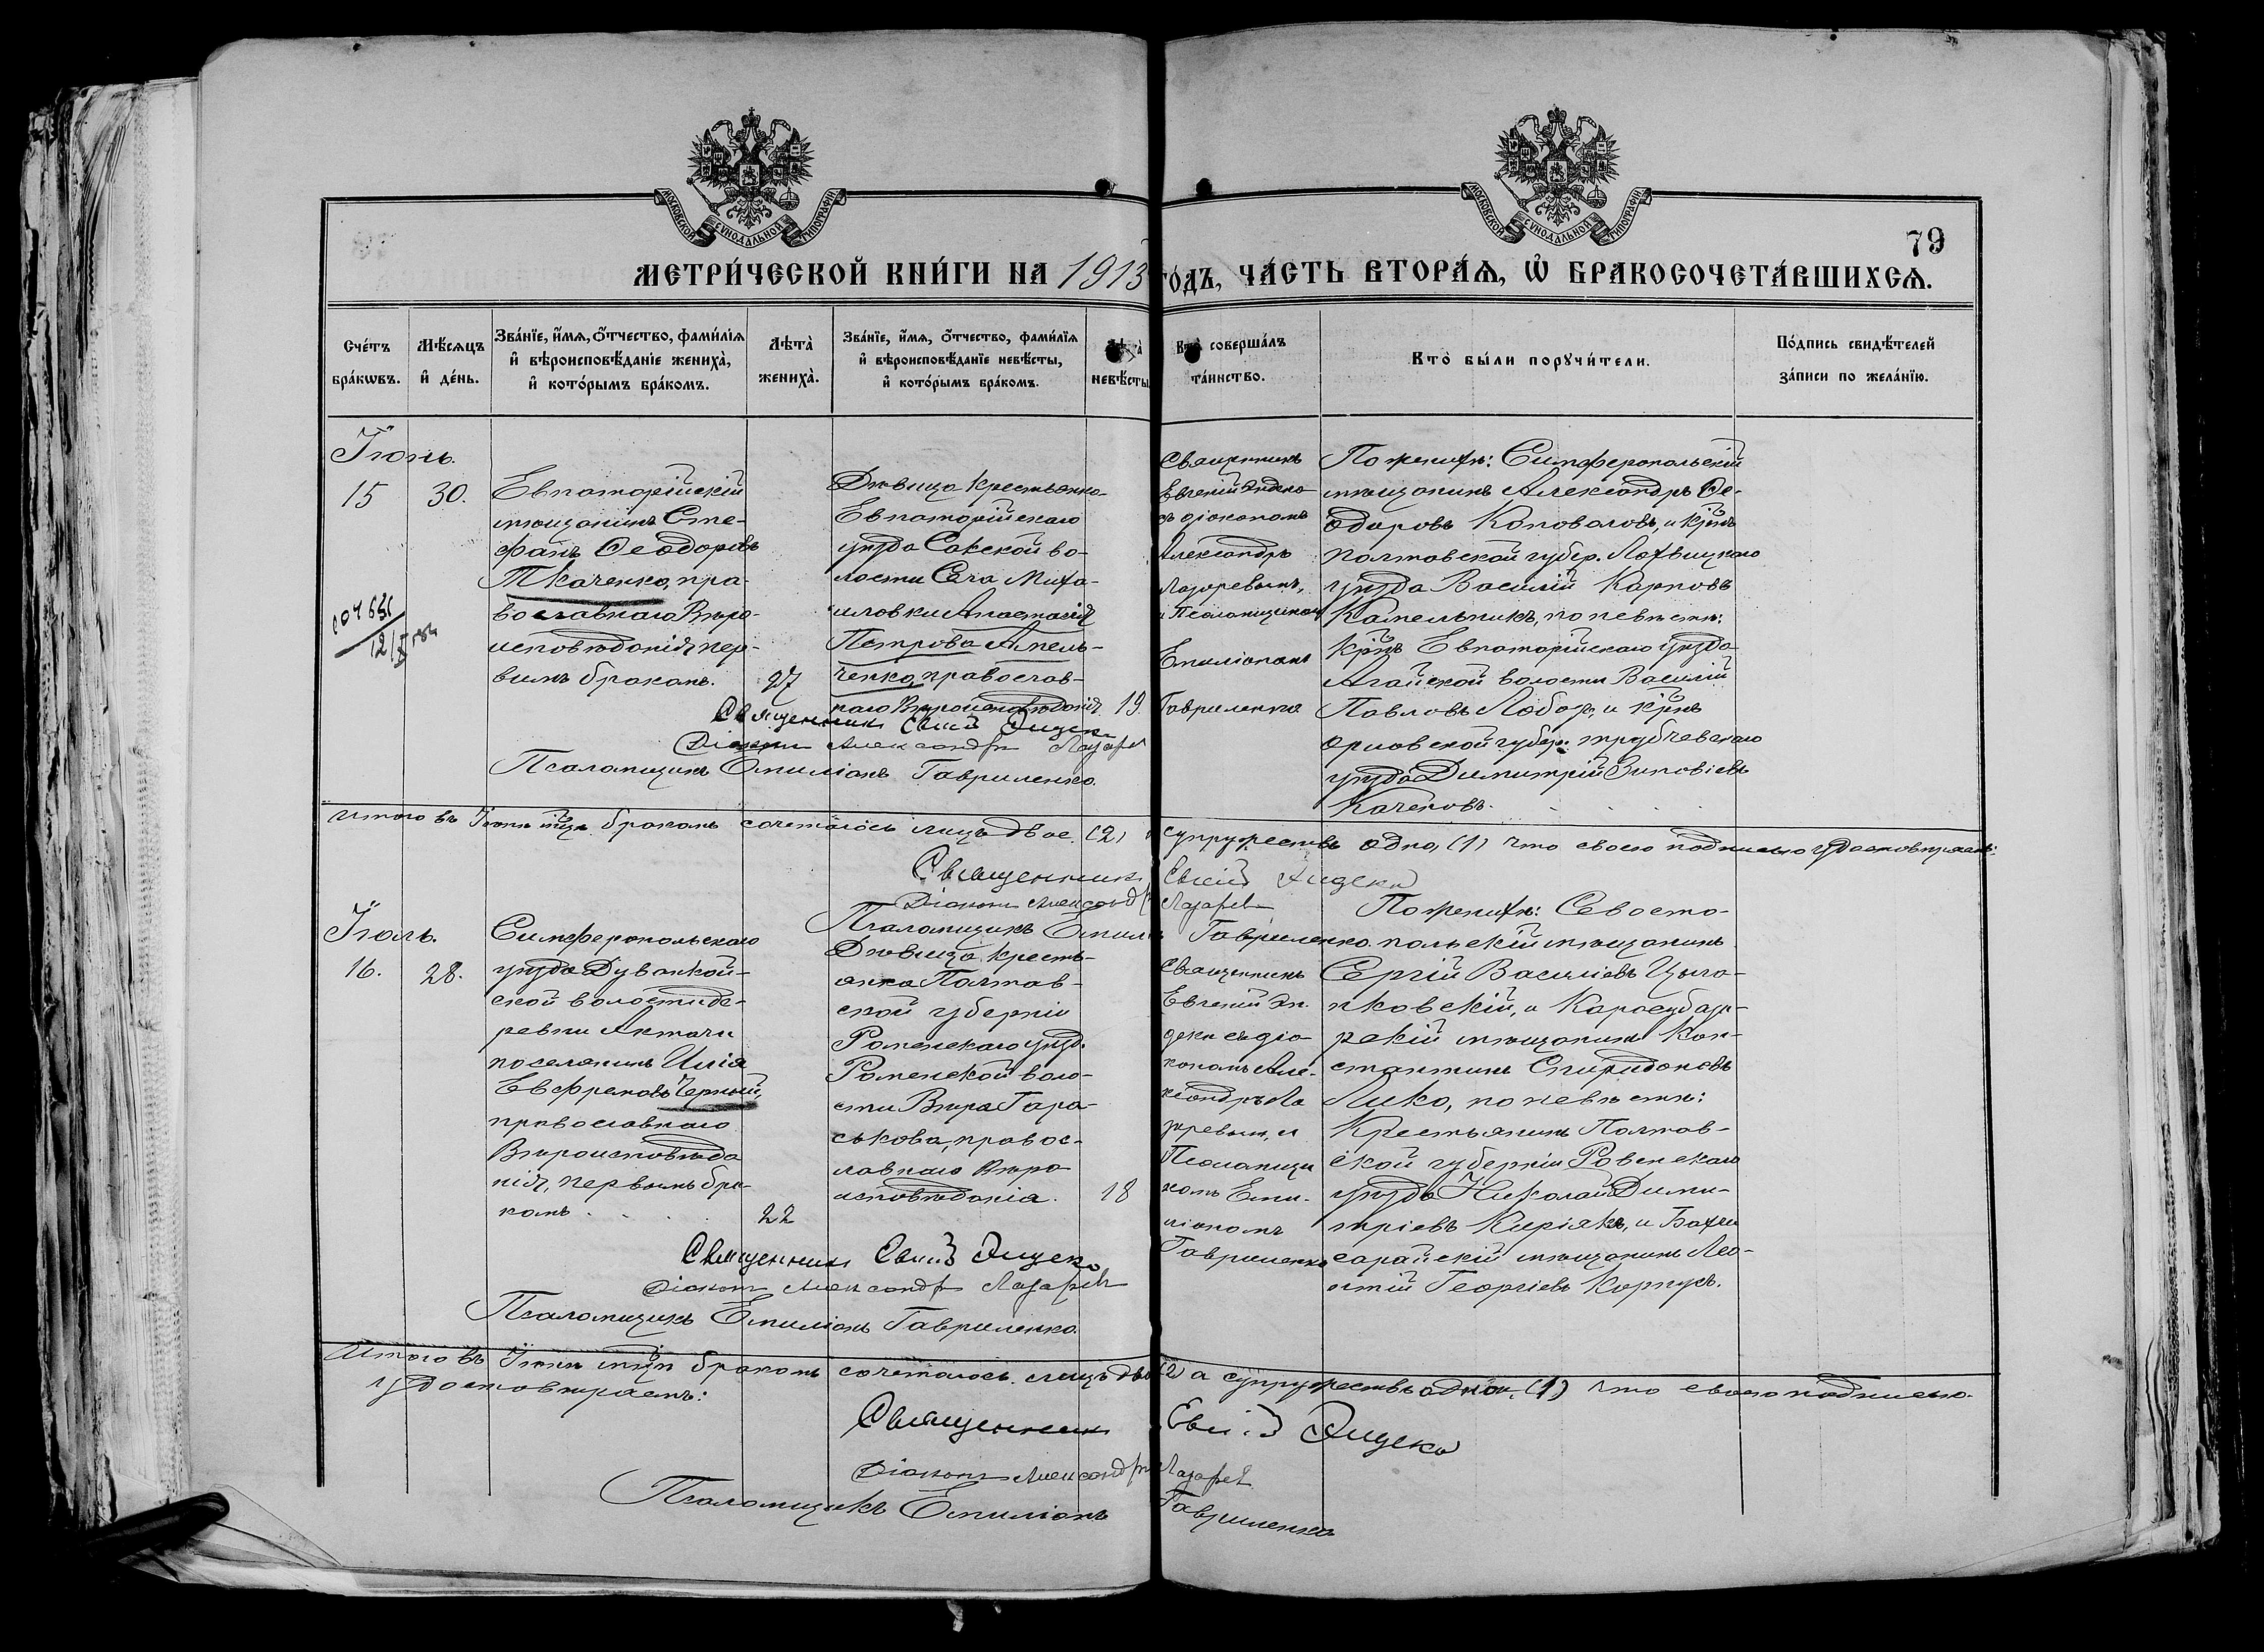 МОСКОВСКОЙ СУНОДАЛЬНОЙ ТИПОГРАФИИ
МОСКОВСКОЙ СУНОДАЛЬНОЙ ТИПОГРАФИИ
79
МЕТРИ́ЧЕСКОЙ КНИ́ГИ НА 1913 ГО́ДЪ, ЧА́СТЬ ВТОРА́Ѧ, Ѡ҆ БРАКОСОЧЕТА́ВШИХСѦ.
Сче́тъ бра́кѡвъ.
Мѣ́сѧцъ и҆ де́нь.
Зва́нїе, и҆́мѧ, ѻ҆́тчество, фами́лїѧ и҆ вѣроисповѣ́данїе жениха̀, и҆ кото́рымъ бра́комъ.
Лѣта̀ жениха̀.
Зва́нїе, и҆́мѧ, ѻ҆́тчество, фами́лїѧ и҆ вѣроисповѣ́данїе невѣ́сты, и҆ кото́рымъ бра́комъ.
Лѣта̀ невѣ́сты
Кто̀ соверша́лъ та́инство.
Кто̀ бы́ли порꙋчи́тели.
По́дпись свидѣ́телей за́писи по жела́нїю.
Іюнь.
15
30.
Евпаторійскій
мѣщанинъ Сте-
фанъ Ѳеодоровъ
Ткаченко, пра-
вославнаго Вѣро-
исповѣданія, пер-
вымъ бракомъ.
27
Дѣвица крестьянка
Евпаторійскаго
уѣзда Сакской во-
лости Села Миха-
иловки Анастасія
Петрова Амель-
ченко, православ-
наго Вѣроисповѣданія.
19.
Священникъ
Евгеній Эндека
съ діакономъ
Александръ
Лазаревымъ,
и Псаломщикомъ
Емиліаномъ
Гавриленко
По женихѣ: Симферопольскій
мѣщанинъ Александръ Ѳе-
одоровъ Коноваловъ, и кр-нъ
Полтавской губер. Лохвицкаго
уѣзда Василій Карповъ
Камельникъ, по невѣстѣ:
Кр-нъ Евпаторійскаго уѣзда
Агайской волости Василій
Павловъ Лобарь, и кр-нъ
Орловской губер. трубчевскаго
уѣзда Димитрій Зиновіевъ
Каченовъ.
Священникъ Евгеній Эндека
Діаконъ Александръ Лазаревъ
Псаломщикъ Емиліанъ Гавриленко.
Итого въ Іюнѣ мѣсц. бракомъ сочеталось лицъ двое (2) супружествъ одно, (1) что своею подписью удостовѣряемъ:
Священникъ Евгеній Эндека
Діаконъ Александръ Лазаревъ
Псаломщикъ Емиліанъ Гавриленко
Іюль.
16.
28.
Симферопольскаго
уѣзда Дуванкой-
ской волости де-
ревни Актачи
поселянинъ Илія
Евфремовъ Черный,
православнаго
Вѣроисповѣда
нія, первымъ бра-
комъ
22
Дѣвица кресть-
янка Полтав-
ской губерніи
Роменскаго уѣзд.
Роменской воло-
сти Вѣра Гара-
ськова, правос-
лавнаго Вѣро
исповѣданія.
18
Священникъ
Евгеній Эн-
дека съ діа-
кономъ Але-
ксандръ Ла
заревым, и
Псаломщи
комъ Еми-
ліаномъ
Гавриленко
По женихѣ: Севасто-
польскій мѣщанинъ
Сергій Василіевъ Цыга-
нковскій, и Карасубаза-
рскій мѣщанинъ Кон-
стантинъ Спиридоновъ
Лико, по невѣстѣ:
Крестьянинъ Полтав-
ской губерніи Ровенскаго
уѣзда Николай Дими-
тріевъ Киріякъ, и Бахчи
сарайскій мѣщанинъ Лео-
нтій Георгіевъ Корпусъ.
Священникъ Евгеній Эндека
Діаконъ Александръ Лазаревъ
Псаломщикъ Емиліанъ Гавриленко
Итого въ Іюлѣ мѣсцѣ бракомъ сочеталось лицъ двое (2) а супружествъ одно, (1) что своею подписью
удостовѣряемъ:
Священникъ Евгеній Эндека
Діаконъ Александръ Лазаревъ
Псаломщикъ Емиліанъ Гавриленко